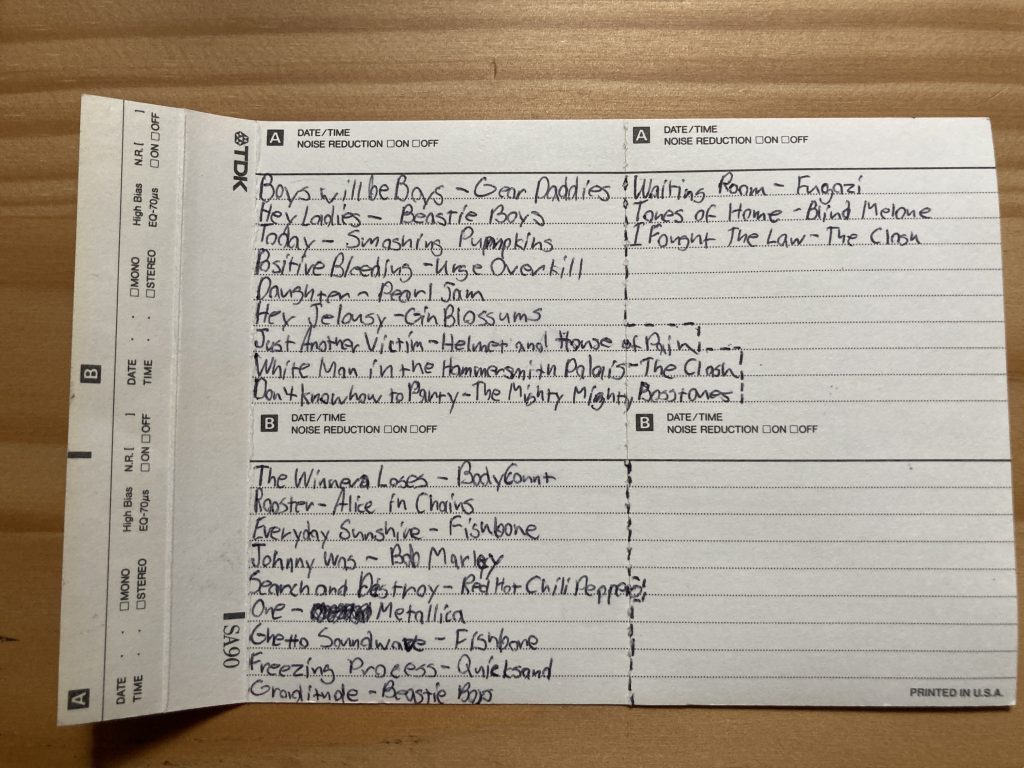 A B
DATE DATE
TIME : : TIME : :
☐MONO ☐MONO
☐STEREO ☐STEREO
High Bias High Bias
EQ-70µs EQ-70µs
N.R.[ ] N.R.[ ]
☐ON ☐OFF ☐ON ☐OFF
TDK
SA90
A DATE/TIME
NOISE REDUCTION ☐ON ☐OFF
Boys will be Boys - Gear Daddies
Hey Ladies - Beastie Boys
Today - Smashing Pumpkins
Positive Bleeding - Urge Overkill
Daughter - Pearl Jam
Hey Jelousy - Gin Blossums
Just Another Victim - Helmet and House of Pain
White Man in the Hammersmith Palais - The Clash
Don't know how to Party - The Mighty Mighty Bosstones
A DATE/TIME
NOISE REDUCTION ☐ON ☐OFF
Waiting Room - Fugazi
Tones of Home - Blind Melone
I Fought The Law - The Clash
B DATE/TIME
NOISE REDUCTION ☐ON ☐OFF
The Winner Loses - Body Count
Rooster - Alice in Chains
Everyday Sunshine - Fishbone
Johnny Was - Bob Marley
Search and Destroy - Red Hot Chili Peppers
One - Metallica
Ghetto Soundwave - Fishbone
Freezing Process - Quicksand
Graditude - Beastie Boys
B DATE/TIME
NOISE REDUCTION ☐ON ☐OFF
PRINTED IN U.S.A.